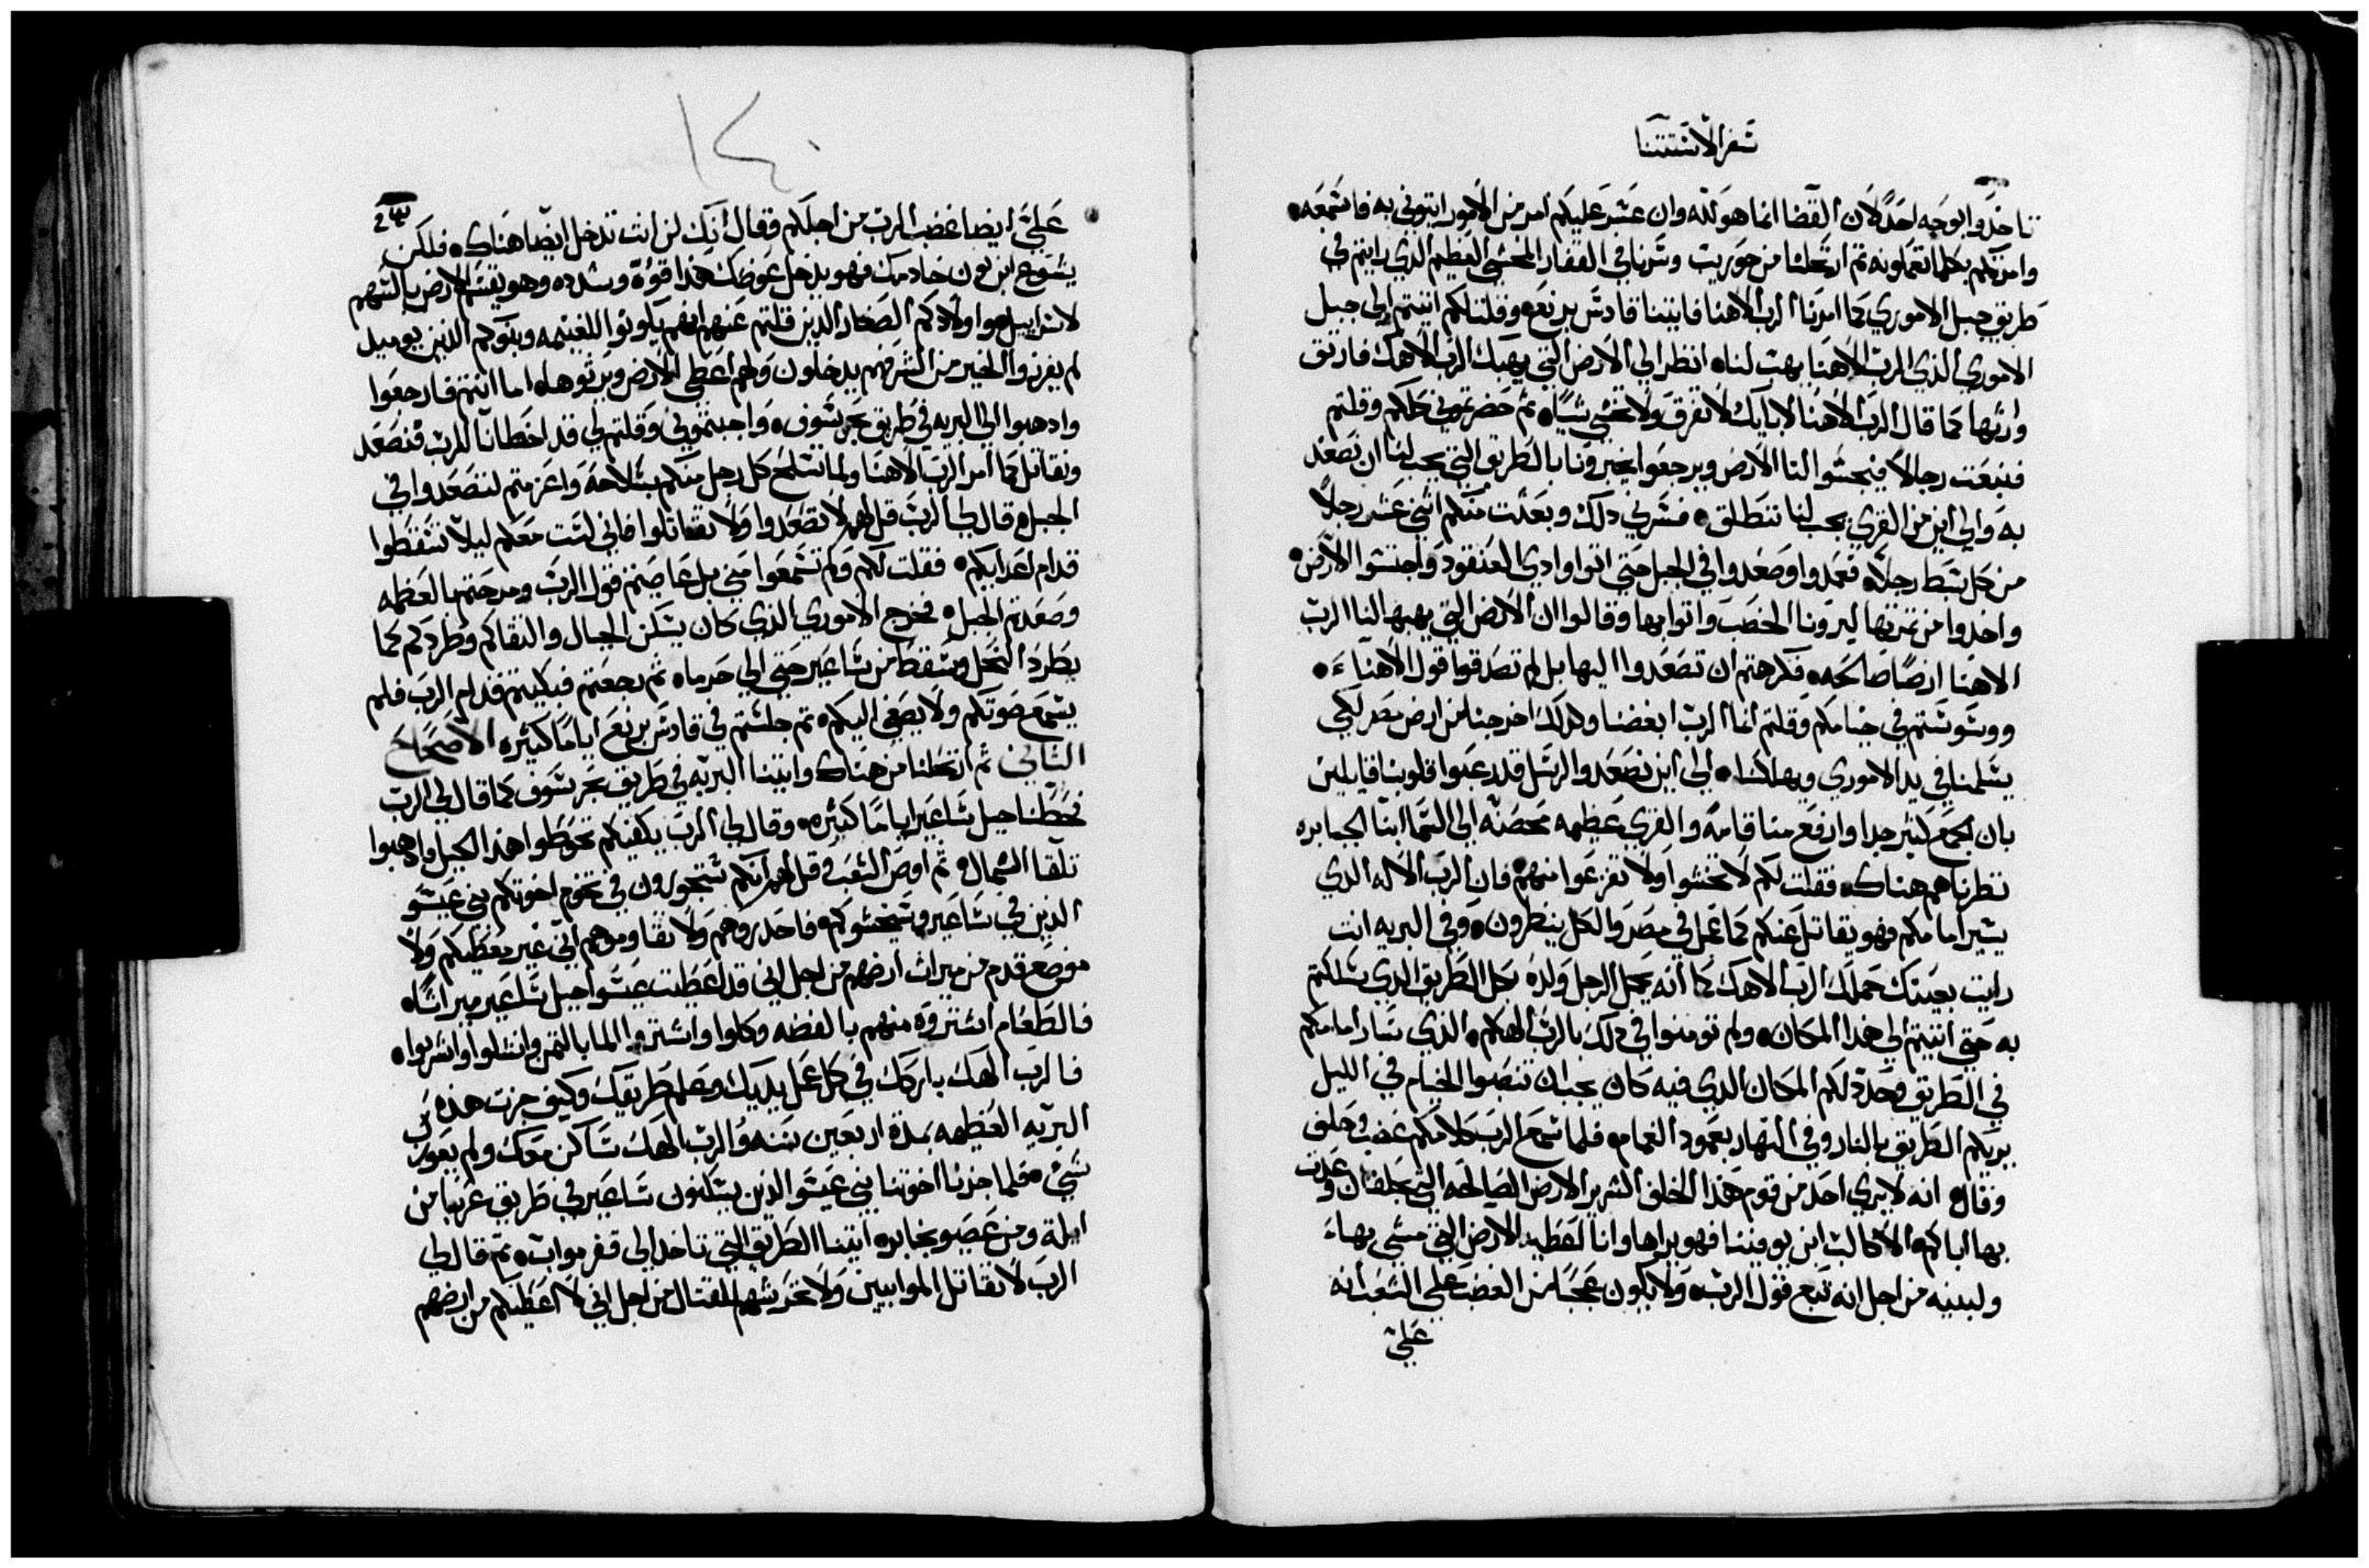 سفر الاستثنا
تاخدوا بوجه احد لان القضا انما هو لله وان عسر عليكم امر من الامور ايتوني به فاسمعه
وامرتكم بكلما تعملونه ثم ارتحلنا من حوريت وسرنا في القفار المخشي العظيم الذي رايتم في
طريق جبل الاموري كما امرنا الرب الاهنا فاتينا قادس برنيع وقلت لكم اتيتم الي جبل
الاموري الذي الرب الاهنا يهب لنا انظر الي الارض التي يهبك الرب الاهك فارتق
وارثها كما قال الرب الاهنا لابايك لا تفرق ولا تخشي شيا ثم حضرتموني كلكم وقلتم
فنبعت رجالا فيجسوا لنا الارض ويرجعوا يخبرونا بالطريق التي يجب لنا ان نصعد
به والي اين من القري يجب لنا ننطلق فسرني دلك وبعتت منكم اثني عشر رجلا
من كل سبط رجلا فعمدوا وصعدوا في الجبل حتي اتوا وادي العنقود واجتسوا الارض
واخدوا من ثمرتها ليرونا الخصب واتوا بها وقالوا ان الارض التي يهبها لنا الرب
الاهنا ارضا صالحه فكرهتم ان تصعدوا اليها بل لم تصدقوا قول الاهنا
ووسوستم في خيامكم وقلتم انما الرب ابغضنا ولدلك اخرجنا من ارض مصر لكي
يسلمنا في يد الاموري ويهلكنا الي اين نصعد والرسل قد رعبوا قلوبنا قايلين
بان الجمع كثير جدا وارفع منا قامه والقري عظيمه محصنه الي السما ابنا الجبابره
نظرناهم هناك فقلت لكم لا تخشوا ولا تفزعوا منهم فان الرب الاله الذي
يسير امامكم فهو يقاتل عنكم كما عمل في مصر والكل ينظرون وفي البريه انت
رايت بعينك حملك الرب الاهك كما انه يحمل الرجل ولده بكل الطريق الدي سلكتم
به حتي اتيتم الي هذا المكان ولم تومنوا في دلك بالرب الهكم الذي سار امامكم
في الطريق وحدد لكم المكان الدي فيه كان يجب ان تنصبوا الخيام في الليل
يريكم الطريق بالنار وفي النهار بعمود الغمام فلما سمع الرب كلامكم غضب وحلف
وقال انه لا يري احد من قوم هذا الخلف الشرير الارض الصالحه التي بحلفان وعدت
بها اباكم الا كالب ابن يوفنا فهو يراها وانا اعطيه الارض التي مشي بها
ولبنيه من اجل انه تبع قول الرب ولا يكون عجبا من الغضب علي الشعب انه
علي
١٤٠
علي ايضا غضب الرب من اجلكم وقال انك لن انت تدخل ايضا هناك فلكن
يشوع ابن نون خادمك فهو يدخل عوضك هذا قوه وشدده وهو يقسم الارض بالسهم
لاسراييل واولادكم الصغار الدين قلتم عنهم انهم يكونوا للغنيمه وبنوكم الذين يوميد
لم يفرزوا الخير من الشر فهم يدخلون ولهم اعطي الارض ويرثوها اما انتم فارجعوا
وادهبوا الي البريه في طريق بحر سوف واجبتموني وقلتم لي قد اخطانا للرب فنصعد
ونقاتل كما امر الرب الاهنا ولما تسلح كل رجل منكم بسلاحه واعزمتم لتصعدوا في
الجبل قال لي الرب قل لهم لا تصعدوا ولا تقاتلوا فاني لست معكم ليلا تسقطوا
قدام اعدايكم فقلت لكم ولم تسمعوا مني بل عاصيتم قول الرب ومرحتم بالعظمه
وصعدتم الجبل فخرج الاموري الذي كان يسكن الجبال والتقاكم وطردكم كما
يطرد النحل وسقط من ساعير حتي الي حرما ثم رجعتم فبكيتم قدام الرب فلم
يسمع صوتكم ولا يصغي اليكم ثم جلستم في قادس برنيع اياما كثيره الاصحاح
الثاني ثم ارتحلنا من هناك واتينا البريه في طريق بحر سوف كما قال لي الرب
فحطنا جبل ساعير اياما كثيره وقال لي الرب يكفيكم تحوطوا هذا الجبل وادهبوا
تلقا الشمال ثم اوص الشعب وقل لهم انكم ستجوزون في تخوم اخوتكم بني عيسو
الذين في ساعير وسيخشوكم فاحدروهم ولا تقاوموهم اني غير معطيكم ولا
موضع قدم من ميراث ارضهم من اجل اني قد اعطيت عيسوا جبل ساعير ميراثا
فالطعام اشتروه منهم بالفضه وكلوا واشتروا الما بالثمن وانشلوا واشربوا
فالرب الهك باركك في كل عمل يديك وعلم طريقك وكيف جزت هذه
البريه العظيمه بمدة اربعين سنه والرب الهك ساكن معك ولم يعوزك
شي فلما جزنا اخوتنا بني عيسو الذين يسكنون ساعير في طريق عربا من
ايلة ومن عصيو نجابر اتينا الطريق التي تاخد الي قفر مواب ثم قال لي
الرب لا تقاتل الموابيين ولا تخرشهم للقتال من اجل اني لا اعطيكم من ارضهم